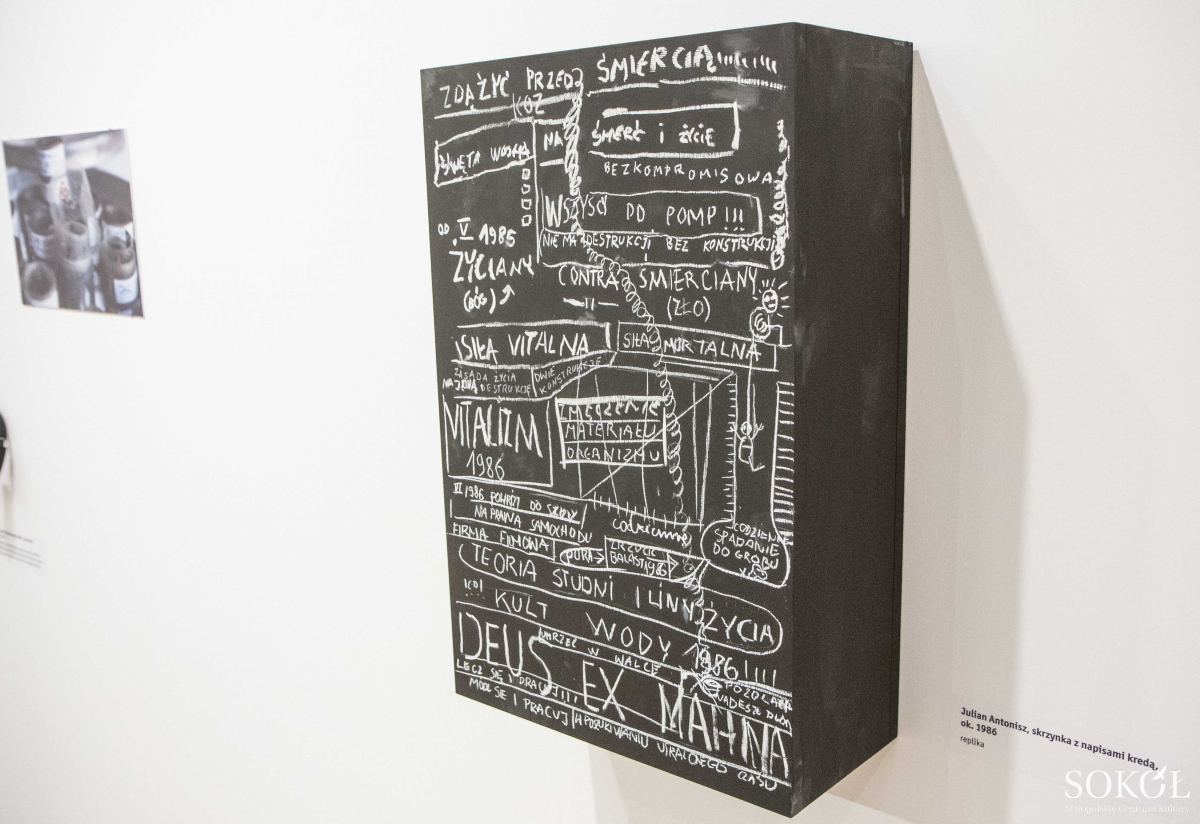 ZDĄŻYĆ PRZED ŚMIERCIĄ
KOZ
ŚWIĘTA WOJNA
NA
ŚMIERĆ i ŻYCIE
BEZKOMPROMISOWA
WSZYSCY DO POMP!!!
NIE MA DESTRUKCJI BEZ KONSTRUKCJI
OD V 1985
ŻYCIANY
CONTRA ŚMIERCIANY
(BÓG)
(ZŁO)
SIŁA VITALNA
SIŁA MORTALNA
ZASADA ŻYCIA
NA JEDNĄ DESTRUKCJĘ
DWIE KONSTRUKCJE
VITALIZM
1986
ZMĘCZENIE
MATERIAŁU
ORGANIZMU
VI 1986 POWRÓT DO
NAPRAWA SAMOCHODU
FIRMA FILMOWA
codziennie
ZRZUCIĆ
BALAST 1986
CODZIENNE
SPADANIE
DO GROBU
TEORIA STUDNI I LINY ŻYCIA
KULT WODY 1986!!!!
UMRZEĆ W WALCE
DEUS EX MAHINA
LECZ SIĘ I PRACUJ!!!
MÓDL SIĘ I PRACUJ
W POSZUKIWANIU UTRACONEGO CZASU
Julian Antonisz, skrzynka z napisami kredą,
ok. 1986
replika
SOKÓŁ
Małopolskie Centrum Kultury